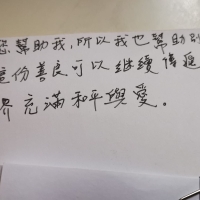 幫助我，所以我也幫助
這份善良可以繼續傳遞
界充滿和平與愛。